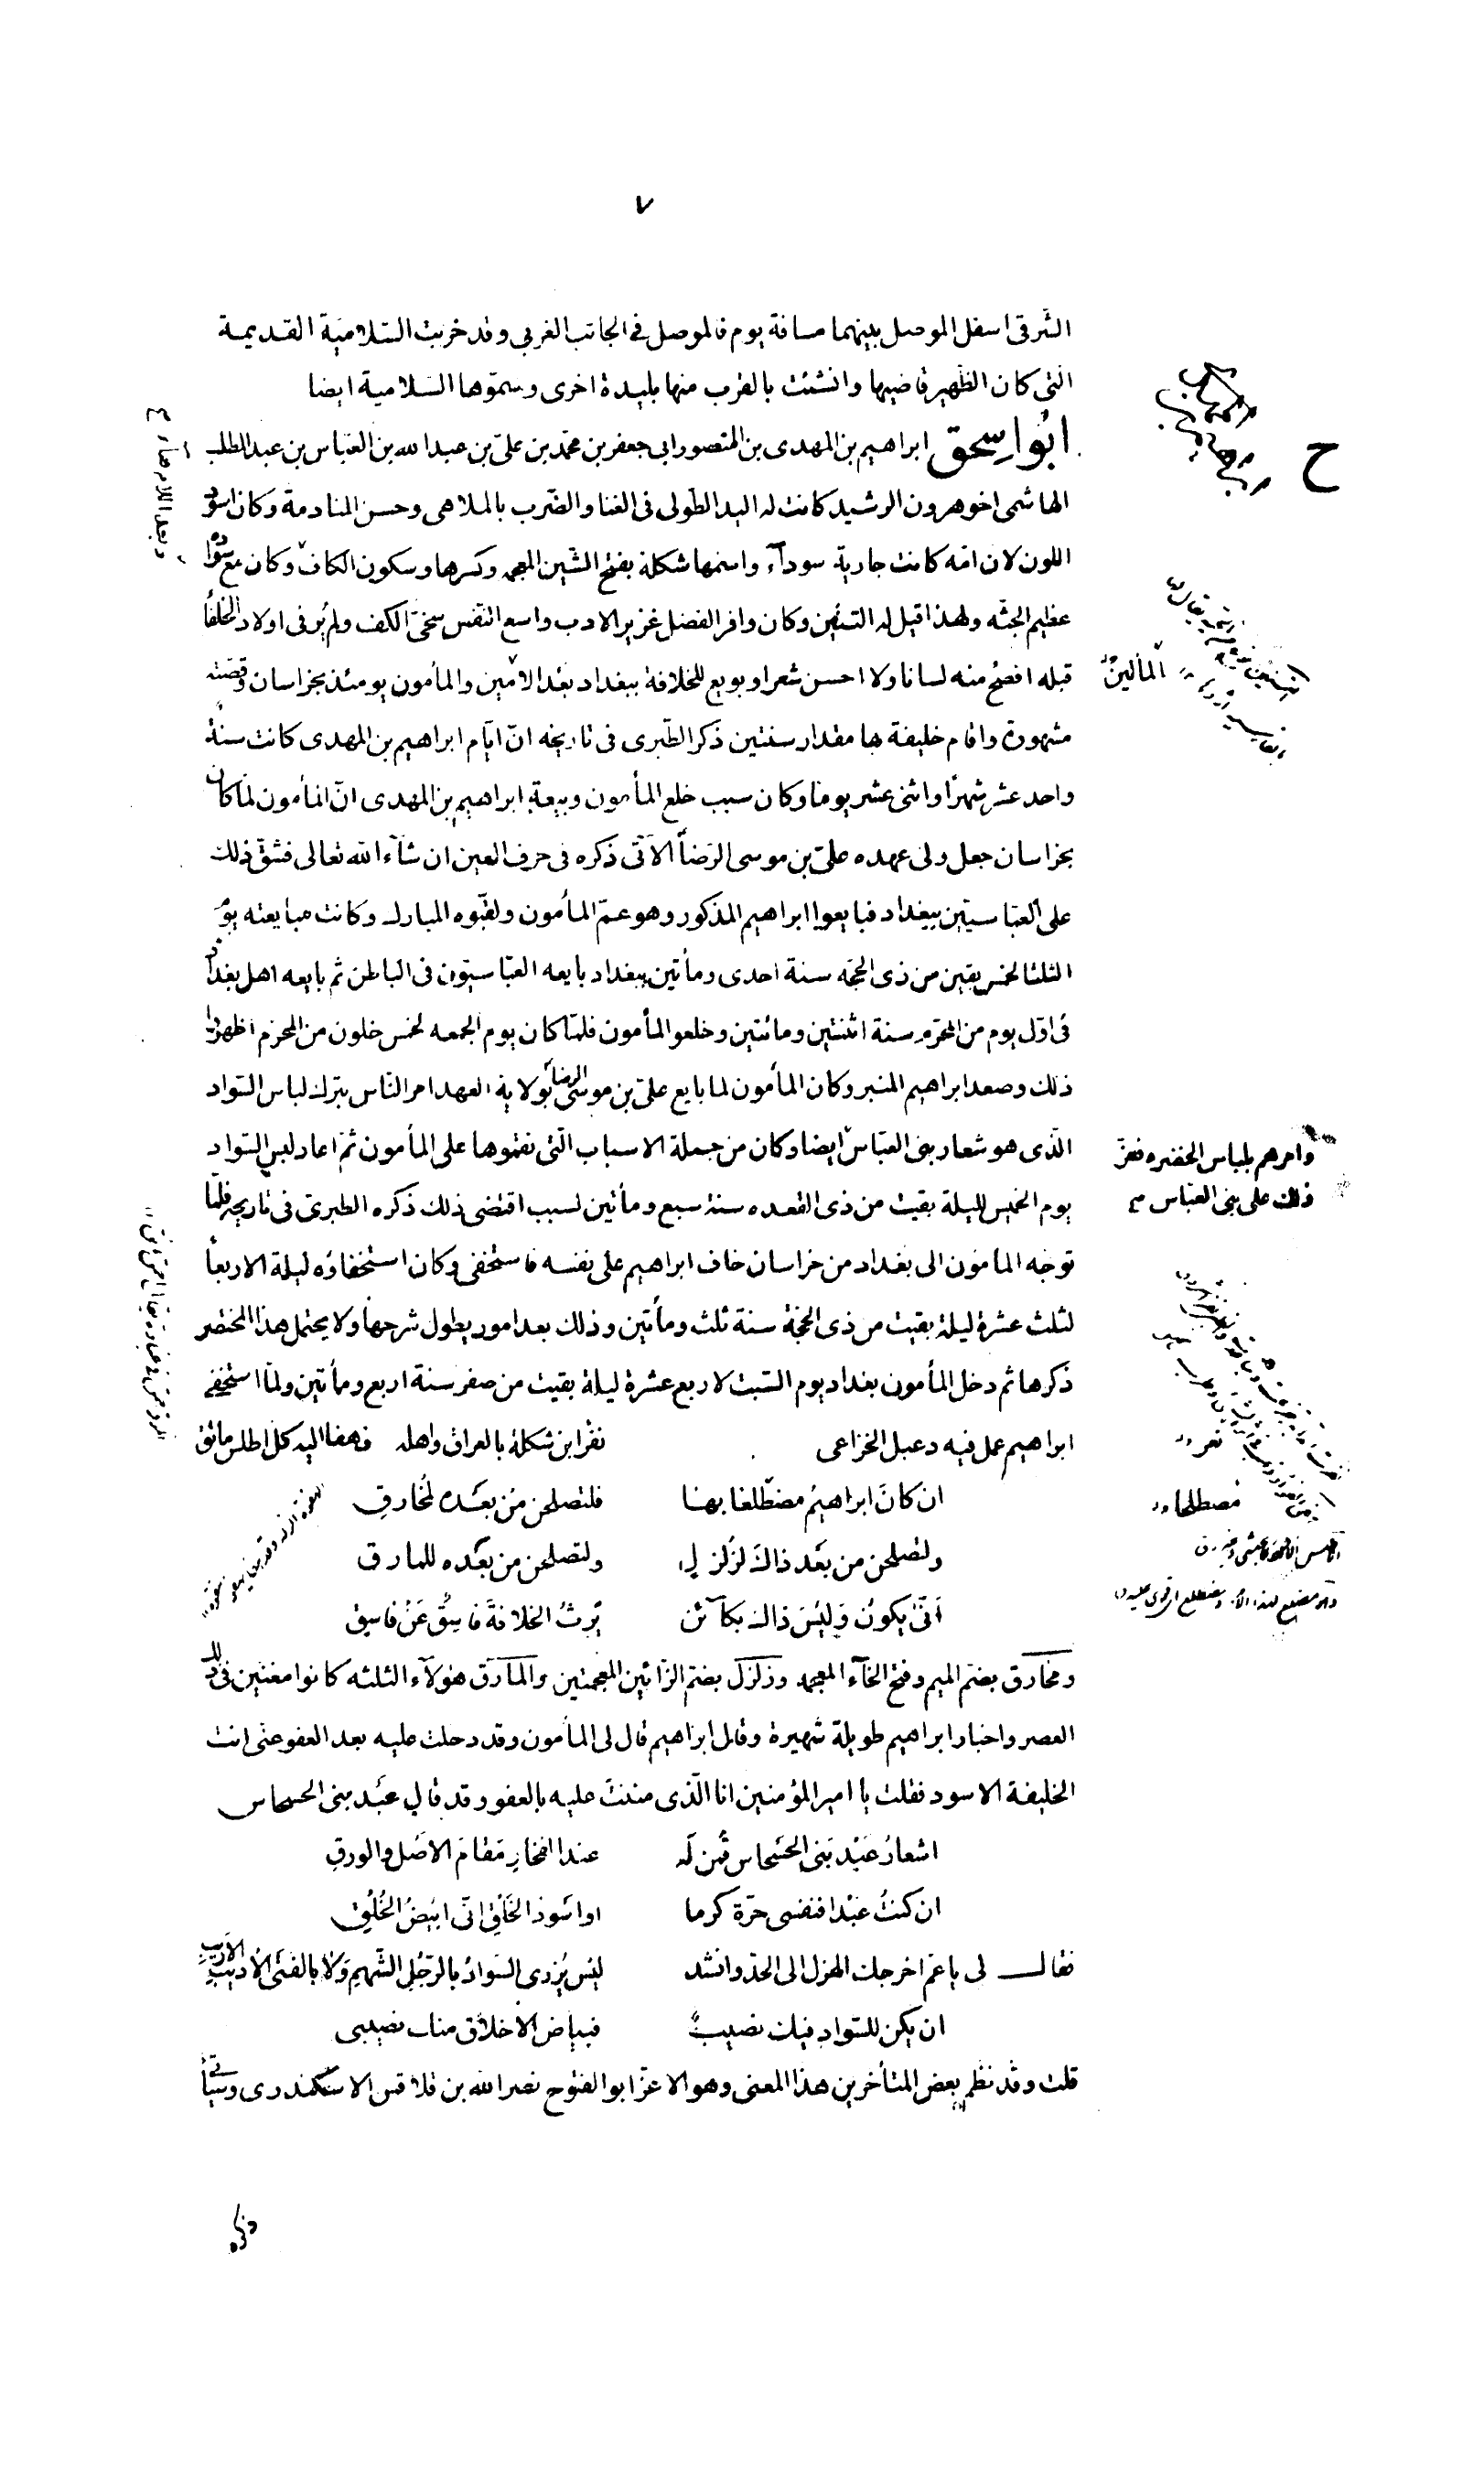 ٧
الشّرقى اسفل الموصل بينهما مسافة يوم فالموصل فى الجانب الغربى وقد خربت السّلاميّة القديمة
الّتى كان الظّهير قاضيها وانشئت بالقرب منها بليدة اخرى وسمّوها السّلامية ايضا
ابُو اسِحق ابراهيم بن المهدى بن المنصور ابى جعفر بن محمّد بن علىّ بن عبدالله بن العبّاس بن عبد المطلب
الهاشمى اخو هرون الرشيد كانت له اليد الطّولى فى الغنا والضّرب بالملاهى وحسن المنادمة وكان اسود
اللون لان امّه كانت جارية سودآء واسمها شكلة بفتح الشّين المعجمه وكسرها وسكون الكاف وكان مع سواده
عظيم الجثّه ولهذا قيل له التنّين وكان وافر الفضل غزير الادب واسع النّفس سخىّ الكف ولم يُر فى اولاد الخلفأ
قبله افصح منه لسانا ولا احسن شعرا وبويع للخلافة ببغداد بعد الامين والمأمون يومئذ بخراسان وقصّته
مشهورة واقام خليفة بها مقدار سنتين ذكر الطّبرى فى تاريخه انّ ايّام ابراهيم بن المهدى كانت سنة
واحد عشر شهرًا واثنى عشر يوما وكان سبب خلع المأمون وبيعة ابراهيم بن المهدى انّ المأمون لمّا كان
بخراسان جعل ولى عهده علىّ بن موسى الرّضا الآتى ذكره فى حرف العين ان شآء الله تعالى فشقّ ذلك
على العبّاسيّين ببغداد فبايعوا ابراهيم المذكور وهو عمّ المأمون ولقّبوه المبارك وكانت مبايعته يوم
الثلثا لخمس بقين من ذى الحجّه سنة احدى ومأتين ببغداد بايعه العبّاسيّون فى الباطن ثم بايعه اهل بغداد
فى اوّل يوم من المحرّم سنة اثنتين ومائتين وخلعو المأمون فلمّا كان يوم الجمعه لخمس خلون من المحرّم اظهروا
ذلك وصعد ابراهيم المنبر وكان المأمون لما بايع علىّ بن موسى الرضا بولاية العهد امر النّاس بترك لباس السّواد
الّذى هو شعار بنى العبّاس ايضا وكان من جملة الاسباب الّتى نقموها على المأمون ثمّ اعاد لبس السّواد
وامرهم بلباس الخضره فعزّ
ذلك على بنى العبّاس
يوم الخميس لليلة بقيت من ذى القعده سنة سبع ومأتين لسبب اقتضى ذلك ذكره الطبرى فى تاريخه فلمّا
توجّه المأمون الى بغداد من خراسان خاف ابراهيم على نفسه فاستخفى وكان استخفاؤه ليلة الاربعأ
لثلث عشرة ليلة بقيت من ذى الحجّة سنة ثلث ومأتين وذلك بعد امور يطول شرحها ولا يحتمل هذا المختصر
ذكرها ثم دخل المأمون بغداد يوم السّبت لاربع عشرة ليلة بقيت من صفر سنة اربع ومأتين ولمّا استخفى
ابراهيم عمل فيه دعبل الخزاعى نفر ابن شكلة بالعراق واهله فهفا اليه كلّ اطلس مائق
ان كانَ ابراهيمُ مضطّلعا بهنا فلتصلحن مِن بعَده لمُخارق
ولتصلحن من بعَد ذاكَ لزَلزلٍ ولتصلحن من بعَده للمارق
أنّى يكونُ وَليَسَ ذاكَ بكآئن يَرثُ الخلافةَ فاسِقٌ عَنْ فاسِق
مصطلحا
ومخارق بضمّ الميم وفتح الخآء المعجمه وزلزل بضمّ الزّائين المعجمتين والمارق هؤلآء الثلثه كانوا مغنّين فى ذلك
العصر واخبار ابراهيم طويلة شهيرة وقال ابراهيم قال لى المأمون وقد دخلت عليه بعد العفو عنّى انت
الخليفة الاسود فقلت يا امير المؤمنين انا الّذى مننتَ عليه بالعفو وقد قال عبَد بنى الحسحاس
اشعارُ عَبْد بَنى الحسَحاس قُمن لَه عند الفَخارِ مَقامَ الاصَل والورقِ
ان كنتُ عبْدا فنفسى حرّة كرما او اسَودَ الخَلْقِ انّى ابيَضُ الخُلُقِ
فقال لى يا عمّ اخرجك الهزل الى الجدّ وانشد ليَس يُزرى السّوادُ بالرّجُل الشّهمِ وَلا بالفتَى الاديبِ الاريبِ
ان يكن للسّوادِ فيك نصيبٌ فبياض الاخلاق منك نصيبى
قلت وقد نظم بعض المتأخرين هذا المعنى وهو الاعزّ ابو الفتوح نصر الله بن قلاقس الاسكندرى وسيأتى
ذكره